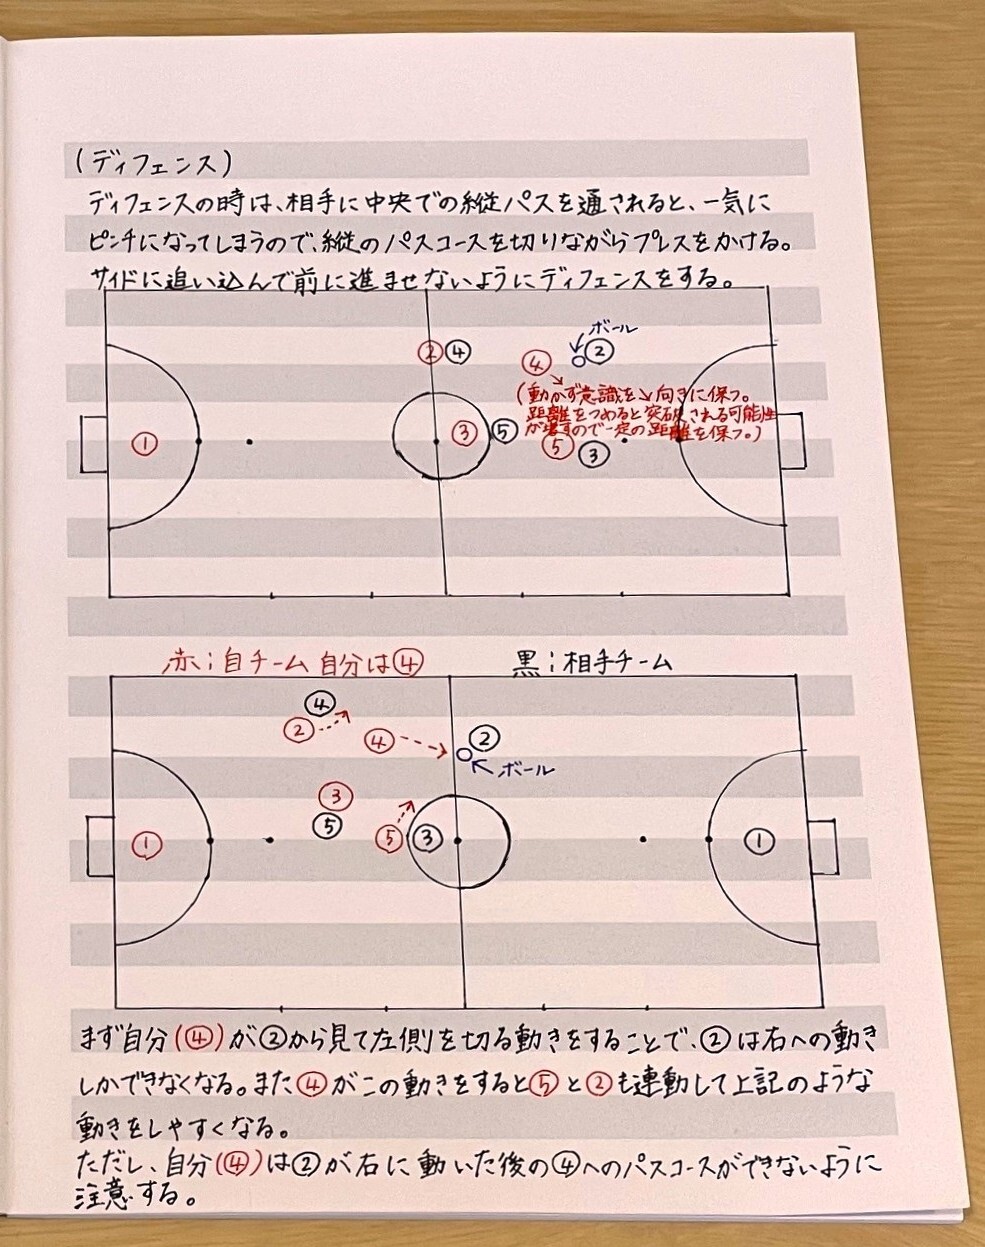 (ディフェンス)
ディフェンスの時は、相手に中央での縦パスを通されると、一気に
ピンチになってしまうので、縦のパスコースを切りながらプレスをかける。
サイドに追い込んで前に進ませないようにディフェンスをする。
ボール
② ④ ④ ②
(動かず意識を↘向きに保つ。
距離をつめると突破される可能性
が増すので一定の距離を保つ。)
① ③ ⑤ ⑤ ③
赤:自チーム 自分は④ 黒:相手チーム
④
② ④ ②
ボール
③
⑤
① ⑤ ③ ①
まず自分(④)が②から見て左側を切る動きをすることで、②は右への動き
しかできなくなる。また④がこの動きをすると⑤と②も連動して上記のような
動きをしやすくなる。
ただし、自分(④)は②が右に動いた後の④へのパスコースができないように
注意する。